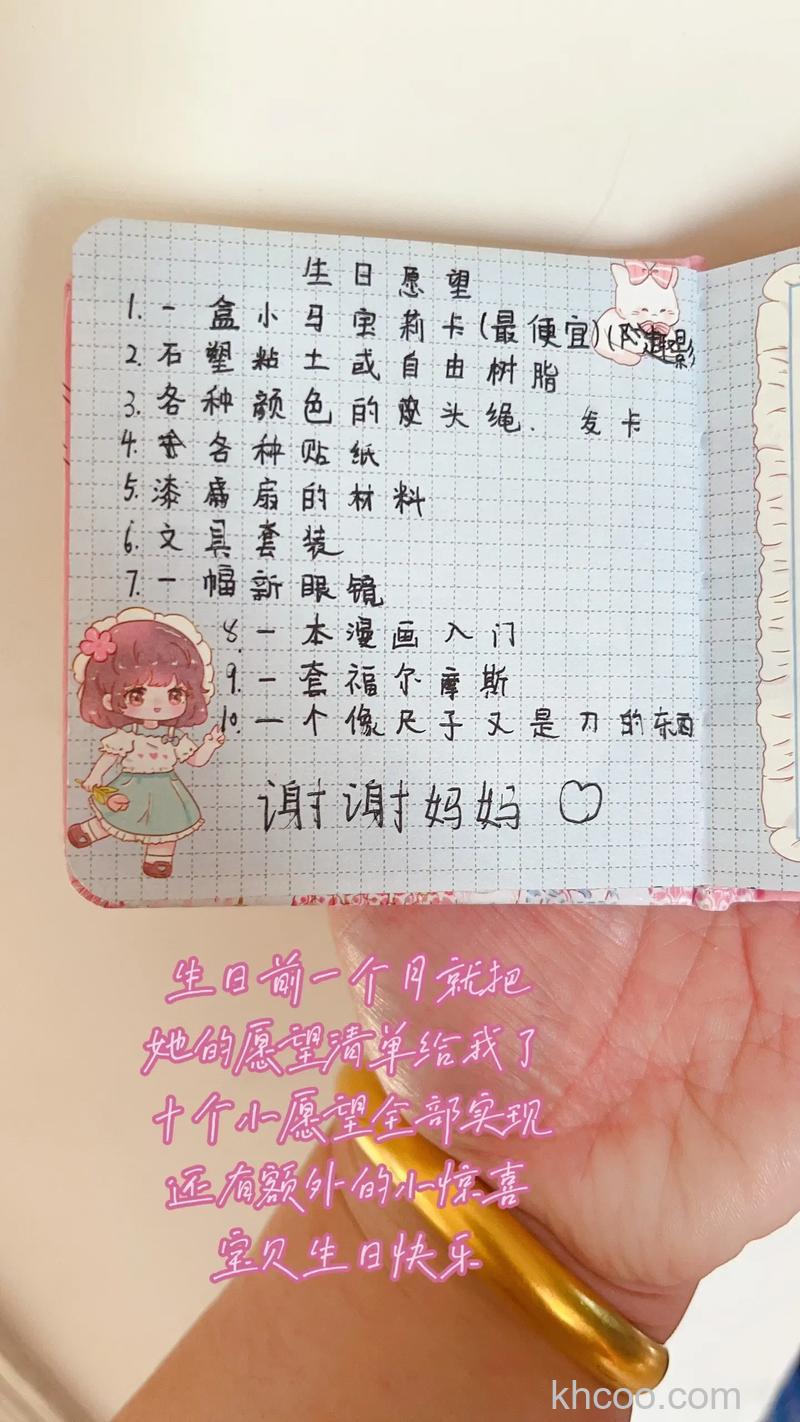 生日愿望
1. 一盒小马宝莉卡(最便宜)(趣影
2. 石塑粘土或自由树脂
3. 各种颜色的头绳. 发卡
4. 各种贴纸
5. 漆扇的材料
6. 文具套装
7. 一幅新眼镜
8. 一本漫画入门
9. 一套福尔摩斯
10. 一个像尺子又是刀的东西
谢谢妈妈♡
生日前一个月就把
她的愿望清单给我了
十个小愿望全部实现
还有额外的小惊喜
宝贝生日快乐
khcoo.com